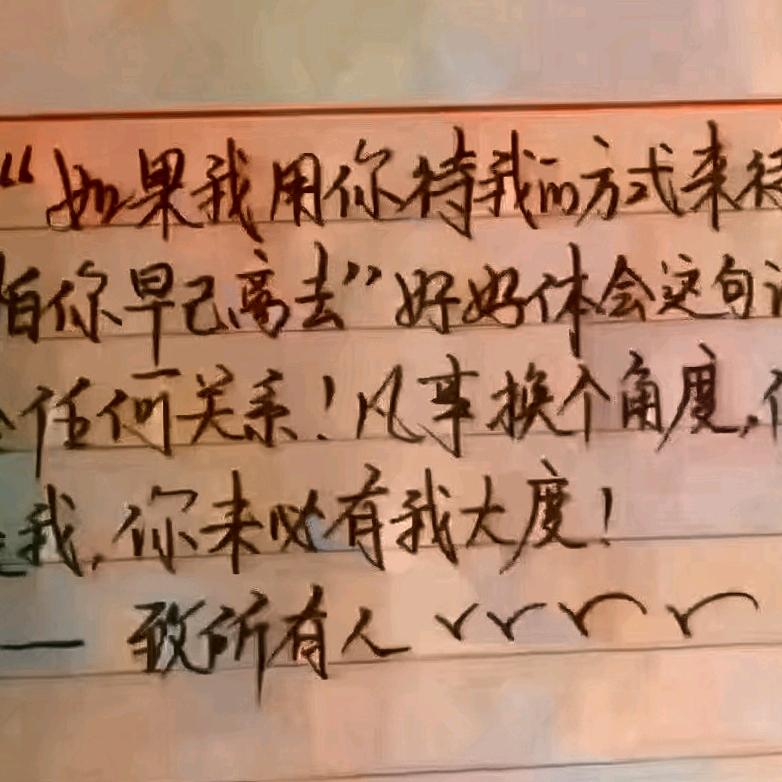 “如果我用你待我的方式来待
怕你早已离去”好好体会这句
任何关系！凡事换个角度,
我,你未必有我大度！
—— 致所有人